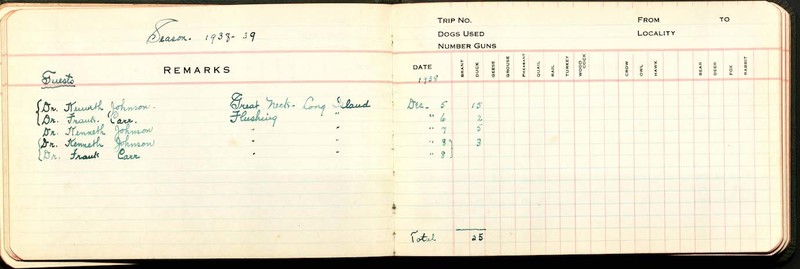 Season. 1938-39
REMARKS
Guests
Dr. Kenneth Johnson. Great Neck - Long Island
Dr. Frank Carr. Flushing "
Dr. Kenneth Johnson " "
Dr. Kenneth Johnson " "
Dr. Frank Carr " "
TRIP NO. FROM TO
DOGS USED LOCALITY
NUMBER GUNS
DATE BRANT DUCK GEESE GROUSE PHEASANT QUAIL RAIL TURKEY WOOD COCK CROW OWL HAWK BEAR DEER FOX RABBIT
1938
Dec. 5 15
" 6 2
" 7 5
" 8 3
" 9
Total 25